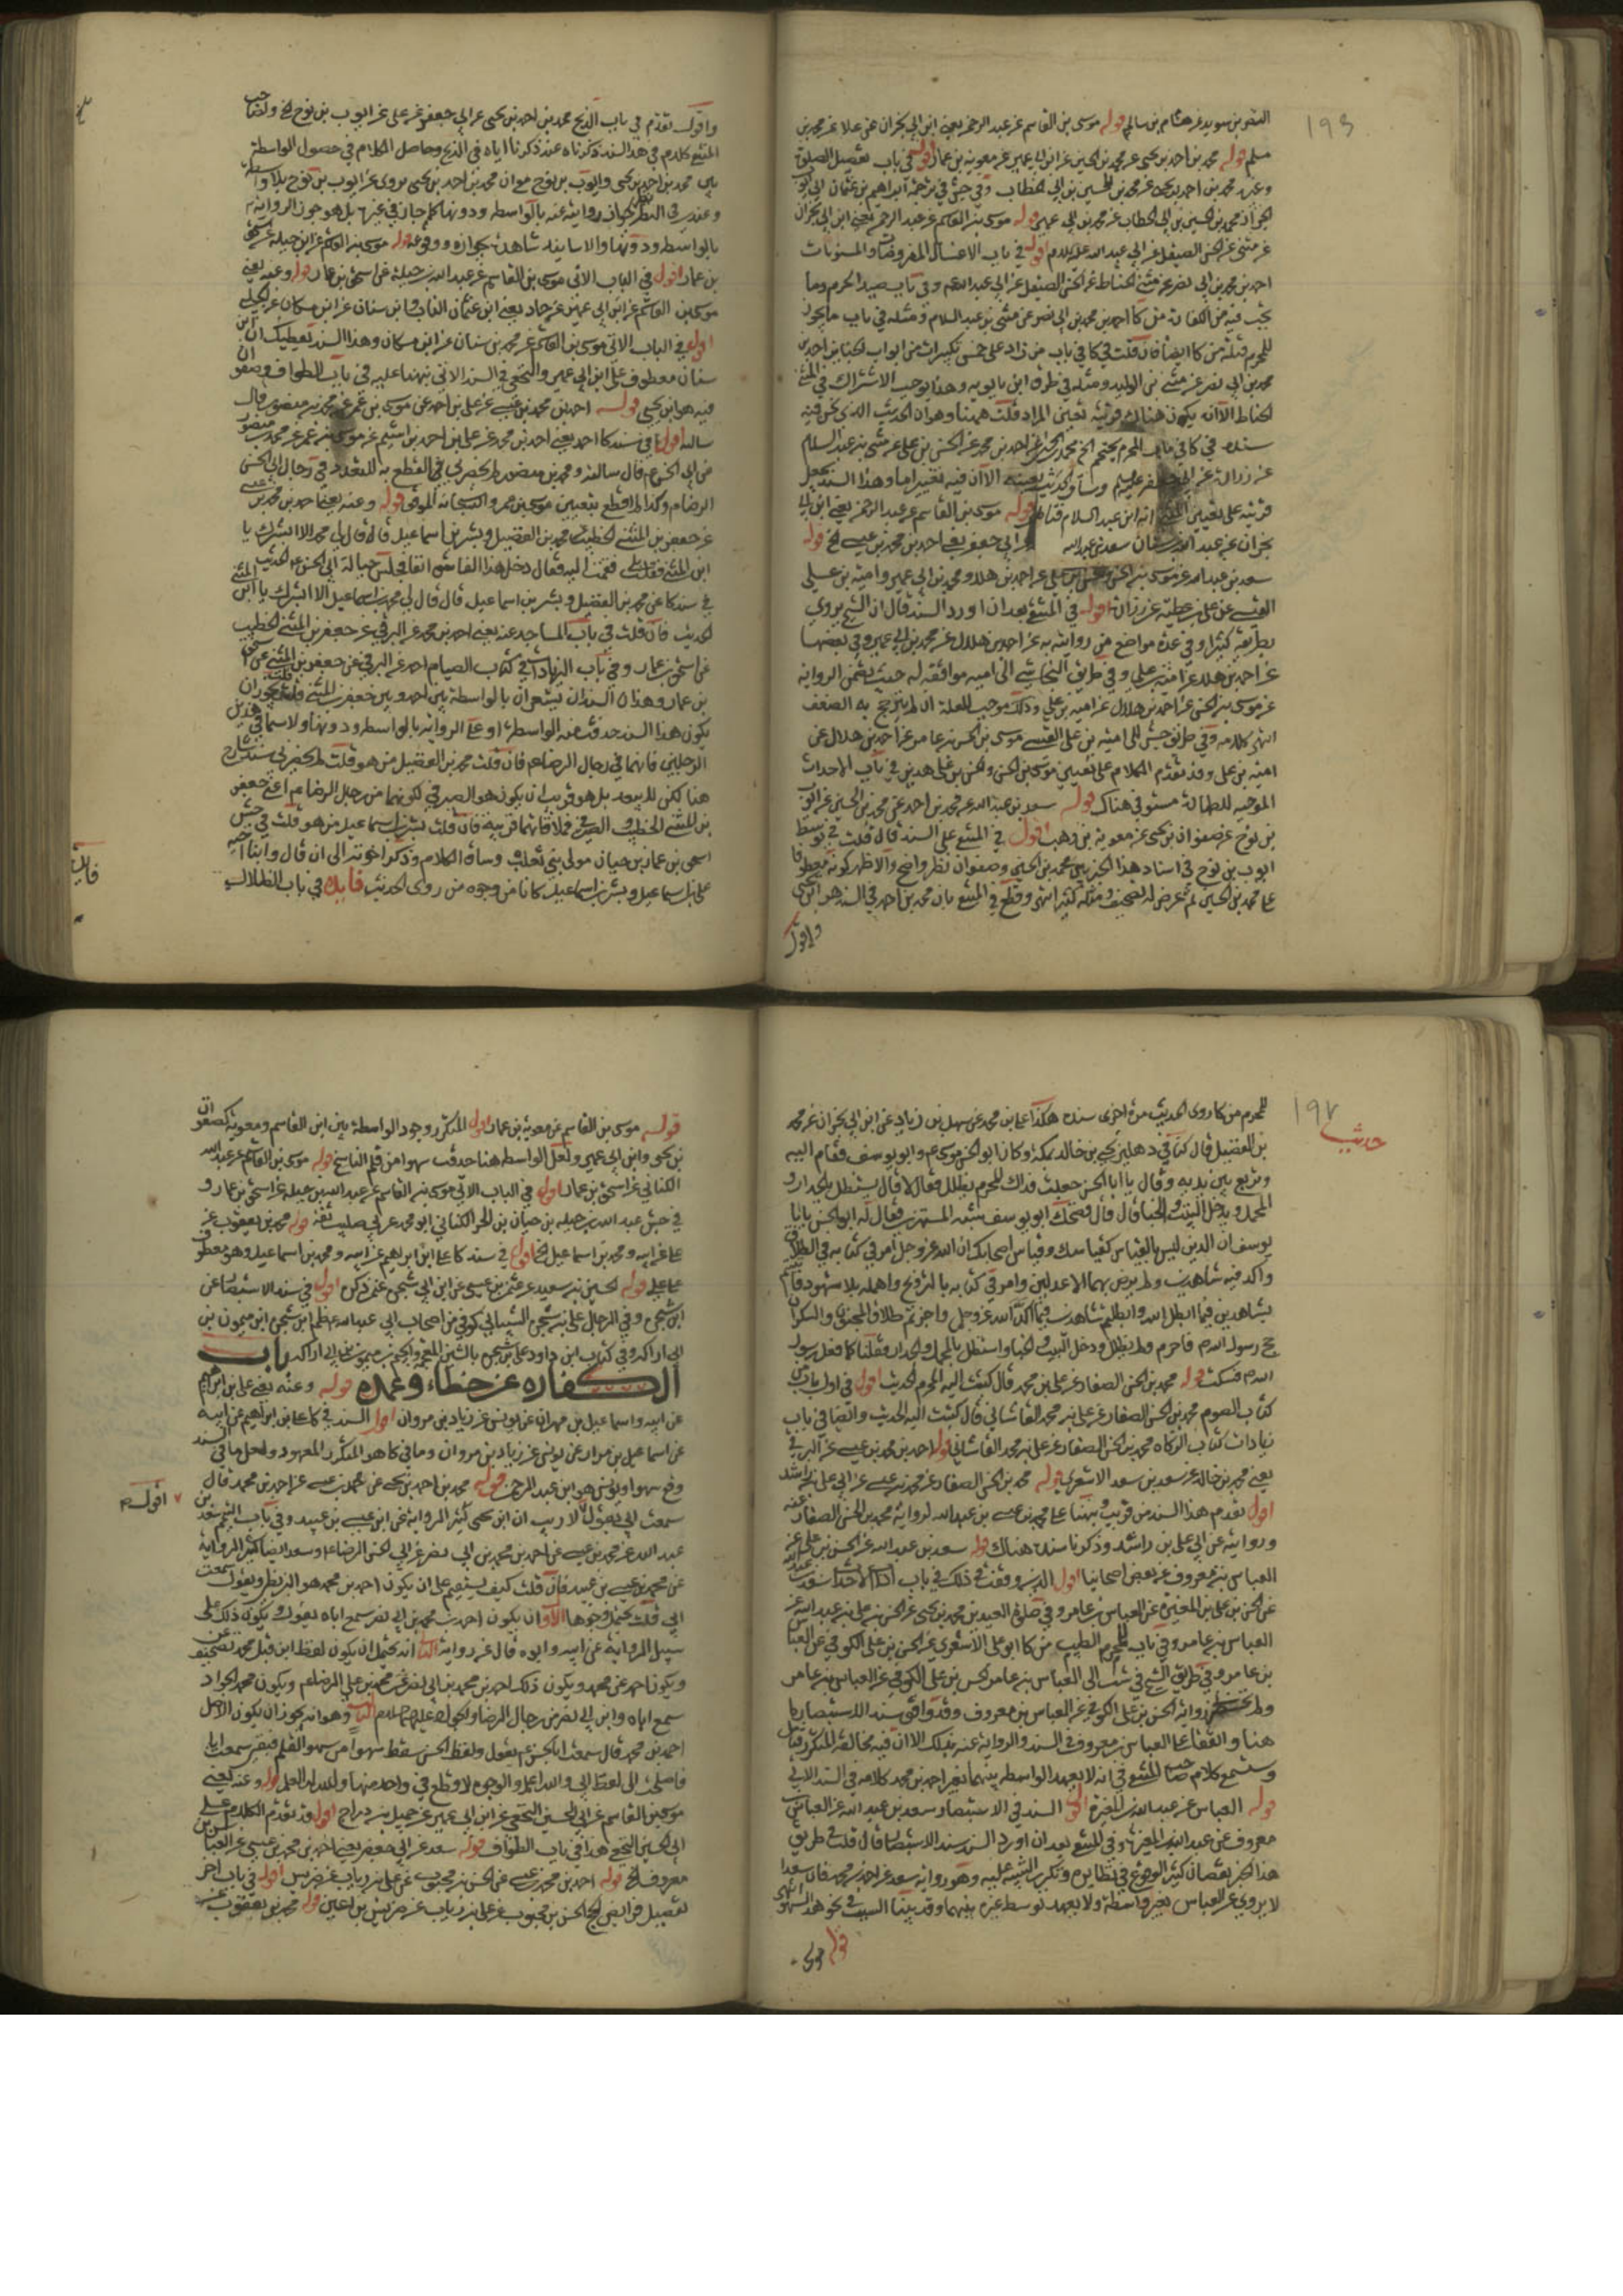 النضر بن سويد عن هشام بن سالم قوله موسى بن القاسم عن عبد الرحمن يعني ابن ابي نجران عن علا عن محمد بن
مسلم قوله محمد بن احمد بن يحيى عن محمد بن الحسين عن ابن ابي عمير عن معوية بن عمار اقول في باب تفصيل
محمد بن احمد بن يحيى عن محمد بن الحسين بن ابي الخطاب وفي ترجمة ابراهيم بن عثمان ابي ايوب
الخزاز محمد بن الحسين بن ابي الخطاب عن محمد بن ابي عمير قوله موسى بن القاسم عن عبد الرحمن يعني ابن ابي نجران
عن مثنى عن الحسن الصيقل عن ابي عبد الله عليه السلام اقول في باب الاغسال المفروضات والمسنونات
احمد بن محمد بن ابي نصر عن مثنى الحناط عن الحسن الصيقل عن ابي عبد الله وفي باب صيد الحرم وما
يجب فيه من الكفارة من كا احمد بن محمد بن ابي نصر عن مثنى بن عبد السلام ومثله في باب ما يجوز
للمحرم قتله من كا ايضا فان قلت في كا في باب من زاد على خمس تكبيرات من ابواب الجنايز احمد بن
محمد بن ابي نصر عن مثنى بن الوليد ومثله في طرق ابن بابويه وهذا يوجب الاشتراك في المثنى
الحناط الا انه يكون هناك قرينة تعين المراد قلت ههنا وهو ان الحديث الذي نحن فيه
سنده في كا في باب المحرم يحتجم احمد بن محمد عن الحسن بن علي عن مثنى بن عبد السلام
عن زرارة عن ابي جعفر عليه السلام وساق الحديث بعينه الا ان فيه تغييرا ما وهذا السند يجعل
قرينة على تعيين المثنى انه ابن عبد السلام قوله موسى بن القاسم عن عبد الرحمن يعني ابن ابي
نجران عن عبد الله بن سنان سعد بن عبد الله عن ابي جعفر يعني احمد بن محمد بن عيسى الخ قوله
سعد بن عبد الله عن موسى بن الحسن والحسن بن علي عن احمد بن هلال ومحمد بن ابي عمير وامية بن علي
القيسي عن علي بن عطية عن زرارة اقول في المنتقى بعد ان اورد السند قال ان الشيخ يروي
بطريقه كثيرا وفي عدة مواضع من روايته به عن احمد بن هلال عن محمد بن ابي عمير وفي بعضها
عن احمد بن هلال عن امية بن علي وفي طريق النجاشي الى امية موافقة له حيث تضمن الرواية
عن موسى بن الحسن عن احمد بن هلال عن امية بن علي وذلك موجب للعلة ان لم يترجح به الضعف
انتهى كلامه وفي طريق جش الى امية بن علي القيسي موسى بن الحسن بن عامر عن احمد بن هلال عن
امية بن علي وقد تقدم الكلام على تعيين موسى بن الحسن والحسن بن علي هذين في باب الاحداث
الموجبة للطهارة مستوفى هناك قوله سعد بن عبد الله عن محمد بن احمد عن محمد بن الحسين عن ايوب
بن نوح عن صفوان بن يحيى عن معوية بن وهب اقول في المنتقى على السند قال قلت في توسط
ايوب بن نوح في اسناد هذا الخبر بين محمد بن الحسين وصفوان نظر واضح والاظهر كونه معطوفا
على محمد بن الحسين ثم عرض له التصحيف ومثله كثير انتهى وقطع في المنتقى بان محمد بن احمد في السند هو ابن يحيى
واقول
واقول تقدم في باب الذبح محمد بن احمد بن يحيى عن ابي جعفر عن علي عن ايوب بن نوح الخ ولصاحب
المنتقى كلام في هذا السند ذكرناه عند ذكرنا اياه في الذبح وحاصل الكلام في حصول الواسطة
بين محمد بن احمد بن يحيى وايوب بن نوح مع ان محمد بن احمد بن يحيى يروي عن ايوب بن نوح بلا واسطة
وعندي في النظر نظر جواز روايته عنه بالواسطة ودونها كما جاز في غيره بل هو جوز الرواية
بالواسطة ودونها والاسانيد شاهدة بجوازه ووقوعه قوله موسى بن القاسم عن ابن جبلة عن اسحق
بن عمار اقول في الباب الاتي موسى بن القاسم عن عبد الله بن جبلة عن اسحق بن عمار قوله وعنه يعني
موسى بن القاسم عن ابن ابي عمير عن حماد يعني ابن عثمان الناب وابن سنان عن ابن مسكان عن الحلبي
اقول في الباب الاتي موسى بن القاسم عن محمد بن سنان عن ابن مسكان وهذا السند يعطيك ان ابن
سنان معطوف على ابن ابي عمير والنخعي في السند الاتي نبهنا عليه في باب الطواف وصفوان
فيه هو ابن يحيى قوله احمد بن محمد بن عيسى عن علي بن احمد عن موسى بن عمر عن محمد بن منصور قال
سالته اقول في سند كا احمد يعني احمد بن محمد عن علي بن احمد بن اشيم عن موسى بن عمر عن محمد بن منصور
عن ابي الحسن ع قال سالته ومحمد بن منصور لم يحضرني القطع به للتعدد في رجال ابي الحسن
الرضا ع وكذا لم اقطع بتعيين موسى بن عمر والله سبحانه الموفق قوله وعنه يعني احمد بن محمد بن عيسى
عن جعفر بن المثنى الخطيب عن محمد بن الفضيل وبشر بن اسماعيل قال قال لي محمد الا ابشرك يا
ابن المثنى فقلت بلى فقمت اليه فقال دخل هذا الفاسق انفا فجلس قبالة ابي الحسن ع الحديث
في سند كا عن محمد بن الفضيل وبشر بن اسماعيل قال قال لي محمد بن اسماعيل الا ابشرك يا ابن المثنى
الحديث فان قلت في باب المساجد عنه يعني احمد بن محمد عن البرقي عن جعفر بن المثنى الخطيب
عن اسحق بن عمار وفي باب الزيادات في كتاب الصيام احمد عن البرقي عن جعفر بن المثنى عن اسحق
بن عمار وهذان السندان يشعران بالواسطة بين احمد وبين جعفر بن المثنى قلت يجوز ان
يكون هذا السند حذفت منه الواسطة او على الرواية بالواسطة ودونها ولا سيما في هذين
الرجلين فانهما في رجال الرضا ع فان قلت محمد بن الفضيل من هو قلت لم يحضرني سند شارح
هنا لكن لا يبعد بل هو قريب ان يكون هو الصيرفي لكونهما من رجال الرضا ع اعني جعفر
بن المثنى الخطيب والصيرفي فملاقاتهما قريبة فان قلت بشر بن اسماعيل من هو قلت في جش
اسحق بن عمار بن حيان مولى بني تغلب وساق الكلام وذكر اخوته الى ان قال وابنا اخيه
علي بن اسماعيل وبشر بن اسماعيل كانا من وجوه من روى الحديث فايدة في باب الظلال
فايدة
193
للمحرم من كا روى الحديث مرة اخرى سنده هكذا علي بن محمد عن سهل بن زياد عن ابن ابي نجران عن محمد
بن الفضيل قال كنا في دهليز يحيى بن خالد بمكة وكان ابو الحسن موسى ع وابو يوسف فقام اليه
وتربع بين يديه وقال يا ابا الحسن جعلت فداك المحرم يظلل فقال لا قال يستظل بالجدار و
المحمل ويدخل البيت والخبا قال نعم قال فضحك ابو يوسف شبه المستهزئ فقال له ابو الحسن يا ابا
يوسف ان الدين ليس بالقياس كقياسك وقياس اصحابك ان الله عز وجل امر في كتابه في الطلاق
واكد فيه شاهدين ولم يرض بهما الا عدلين وامر في كتابه بالتزويج واهمله بلا شهود فاتيتم
بشاهدين فيما ابطل الله وابطلتم شاهدين فيما اكد الله عز وجل واجزتم طلاق المجنون والسكران
حج رسول الله ص فاحرم ولم يظلل ودخل البيت والخبا واستظل بالمحمل والجدار فقلنا كما فعل رسول
الله ص فسكت قوله محمد بن الحسن الصفار عن علي بن محمد قال كتبت اليه المحرم الحديث اقول في اول باب من
كتاب الصوم محمد بن الحسن الصفار عن علي بن محمد القاشاني قال كتبت اليه الحديث وايضا في باب
زيادات كتاب الزكاة محمد بن الحسن الصفار عن علي بن محمد القاشاني قوله احمد بن محمد بن عيسى عن البرقي
يعني محمد بن خالد عن سعد بن سعد الاشعري قوله محمد بن الحسن الصفار عن محمد بن عيسى عن ابي علي بن راشد
اقول تقدم هذا السند من قريب ونبهنا على محمد بن عيسى بن عبيد الله لرواية محمد بن الحسن الصفار عنه
وروايته عن ابي علي بن راشد وذكرنا سنده هناك قوله سعد بن عبد الله عن الحسن بن علي عن
العباس بن معروف عن بعض اصحابنا اقول الذي وقفت في ذلك في باب الاحداث سعد بن عبد الله
عن الحسن بن علي بن المغيرة عن العباس بن عامر وفي صلوة العيدين محمد بن يحيى عن الحسن بن علي بن عبد الله عن
العباس بن عامر وفي باب المحرم الطيب من كا ابو علي الاشعري عن الحسن بن علي الكوفي عن العباس
بن عامر وفي طريق الشيخ في ست الى العباس بن عامر الحسن بن علي الكوفي عن العباس بن عامر
ولم رواية الحسن بن علي الكوفي عن العباس بن معروف وقد وافق سند الاستبصار ما
هنا واتفقا على العباس بن معروف في السند والرواية عنه بذلك الا ان فيه مخالفة المتكرر قبل
وستسمع كلام صاحب المنتقى في انه لا يعهد الواسطة بينهما بغير احمد بن محمد كلامه في السند الاتي
قوله العباس عن عبد الله بن المغيرة اقول السند في الاستبصار سعد بن عبد الله عن العباس بن
معروف عن عبد الله بن المغيرة وفي المنتقى بعد ان اورد السند سند الاستبصار قال قلت في طريق
هذا الخبر نقصان كثير الوقوع في نظايره وتكرر التنبيه عليه وهو رواية سعد عن احمد بن محمد فان سعدا
لا يروي عن العباس بغير واسطة ولا يعهد توسط غيره بينهما وقد بينا السبب في نحو هذا السهو انتهى
قوله
197
حديث
قوله موسى بن القاسم عن معوية بن عمار اقول المتكرر وجود الواسطة بين ابن القاسم ومعوية كصفوان
بن يحيى وابن ابي عمير ولعل الواسطة هنا حذفت سهوا من قلم الناسخ قوله موسى بن القاسم عن عبد الله
الكناني عن اسحق بن عمار اقول في الباب الاتي موسى بن القاسم عن عبد الله بن جبلة عن اسحق بن عمار و
في جش عبد الله بن جبلة بن حيان بن الحر الكناني ابو محمد عربي صليب ثقة قوله محمد بن يعقوب عن
علي عن ابيه ومحمد بن اسماعيل الخ اقول في سند كا علي بن ابراهيم عن ابيه ومحمد بن اسماعيل وهو معطوف
على علي قوله الحسين بن سعيد عن عثمن بن عيسى عن ابن ابي شجرة عمن ذكره اقول في سند الاستبصار عن
ابن شجرة وفي الرجال علي بن شجرة الشيباني كوفي من اصحاب ابي عبد الله ع شجرة ابن ميمون بن
ابي اراكة وفي كتاب ابن داود علي بن شجرة بالشين المعجمة والجيم بن ميمون بن ابي اراكة باب
الكفاره عن خطاء وعمده قوله وعنه يعني علي بن ابراهيم
عن ابيه واسماعيل بن مهران عن يونس عن زياد بن مروان اقول السند في كا علي بن ابراهيم عن ابيه
عن اسماعيل بن مرار عن يونس عن زياد بن مروان وما في كا هو المتكرر المعهود ولعل ما في السند
وقع سهوا ويونس هو ابن عبد الرحمن قوله محمد بن احمد بن يحيى عن محمد بن عيسى عن احمد بن محمد قال
سمعت ابي يقول لا ريب ان ابن يحيى كثير الرواية عن ابن عيسى بن عبيد وفي باب التيمم سعد بن
عبد الله عن محمد بن عيسى عن احمد بن محمد بن ابي نصر عن ابي الحسن الرضا ع وسعد ايضا كثير الرواية
عن محمد بن عيسى بن عبيد فان قلت كيف يستقيم على ان يكون احمد بن محمد هو البزنطي ويقول سمعت
ابي قلت يحتمل وجوها الاول ان يكون احمد بن محمد بن ابي نصر سمع اباه يقول ويكون ذلك على
سبيل الرواية عن ابيه وابوه قال عن رواية الثاني انه يحتمل ان يكون لفظ ابن قبل محمد تصحيف عن
ويكون احمد عن محمد ويكون ذلك احمد بن محمد بن ابي نصر عن محمد بن علي الرضا ع ويكون محمد الجواد
سمع اباه وابن ابي نصر من رجال الرضا والجواد عليهما السلام الثالث وهو انه يجوز ان يكون الاصل
احمد بن محمد قال سمعت ابا الحسن ع يقول ولفظ الحسن سقط سهوا من سهو القلم فبقي سمعت ابا
فاصلح الى لفظ ابي والله اعلم والوجوه لا قطع في واحد منها ولله الحمد قوله وعنه يعني
موسى بن القاسم عن ابي الحسين النخعي عن ابن ابي عمير عن جميل بن دراج اقول قد تقدم الكلام على
ابي الحسين النخعي هذا في باب الطواف قوله سعد عن ابي جعفر يعني احمد بن محمد بن عيسى عن العباس بن
معروف الخ قوله احمد بن محمد بن عيسى عن الحسن بن محبوب عن علي بن رياب عن ضريس اقول في باب اخر
تفصيل فرائض الحج الحسن بن محبوب عن علي بن رياب عن ضريس بن اعين قوله محمد بن يعقوب عن
اقول م